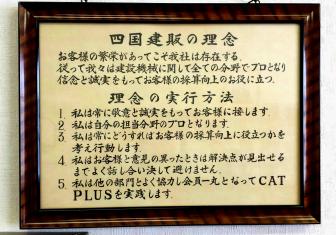 四国建販の理念
お客様の繁栄があってこそ我社は存在する。
従って我々は建設機械に関して全ての分野でプロとなり
信念と誠実をもってお客様の採算向上のお役に立つ。
理念の実行方法
1. 私は常に敬意と誠実をもってお客様に接します.
2. 私は自分の担当分野のプロとなります.
3. 私は常にどうすればお客様の採算向上に役立つかを
考え行動します.
4. 私はお客様と意見の異ったときは解決点が見出せる
までよく話し合い決して避けません.
5. 私は他の部門とよく協力し全員一丸となってCAT
PLUSを実践します.